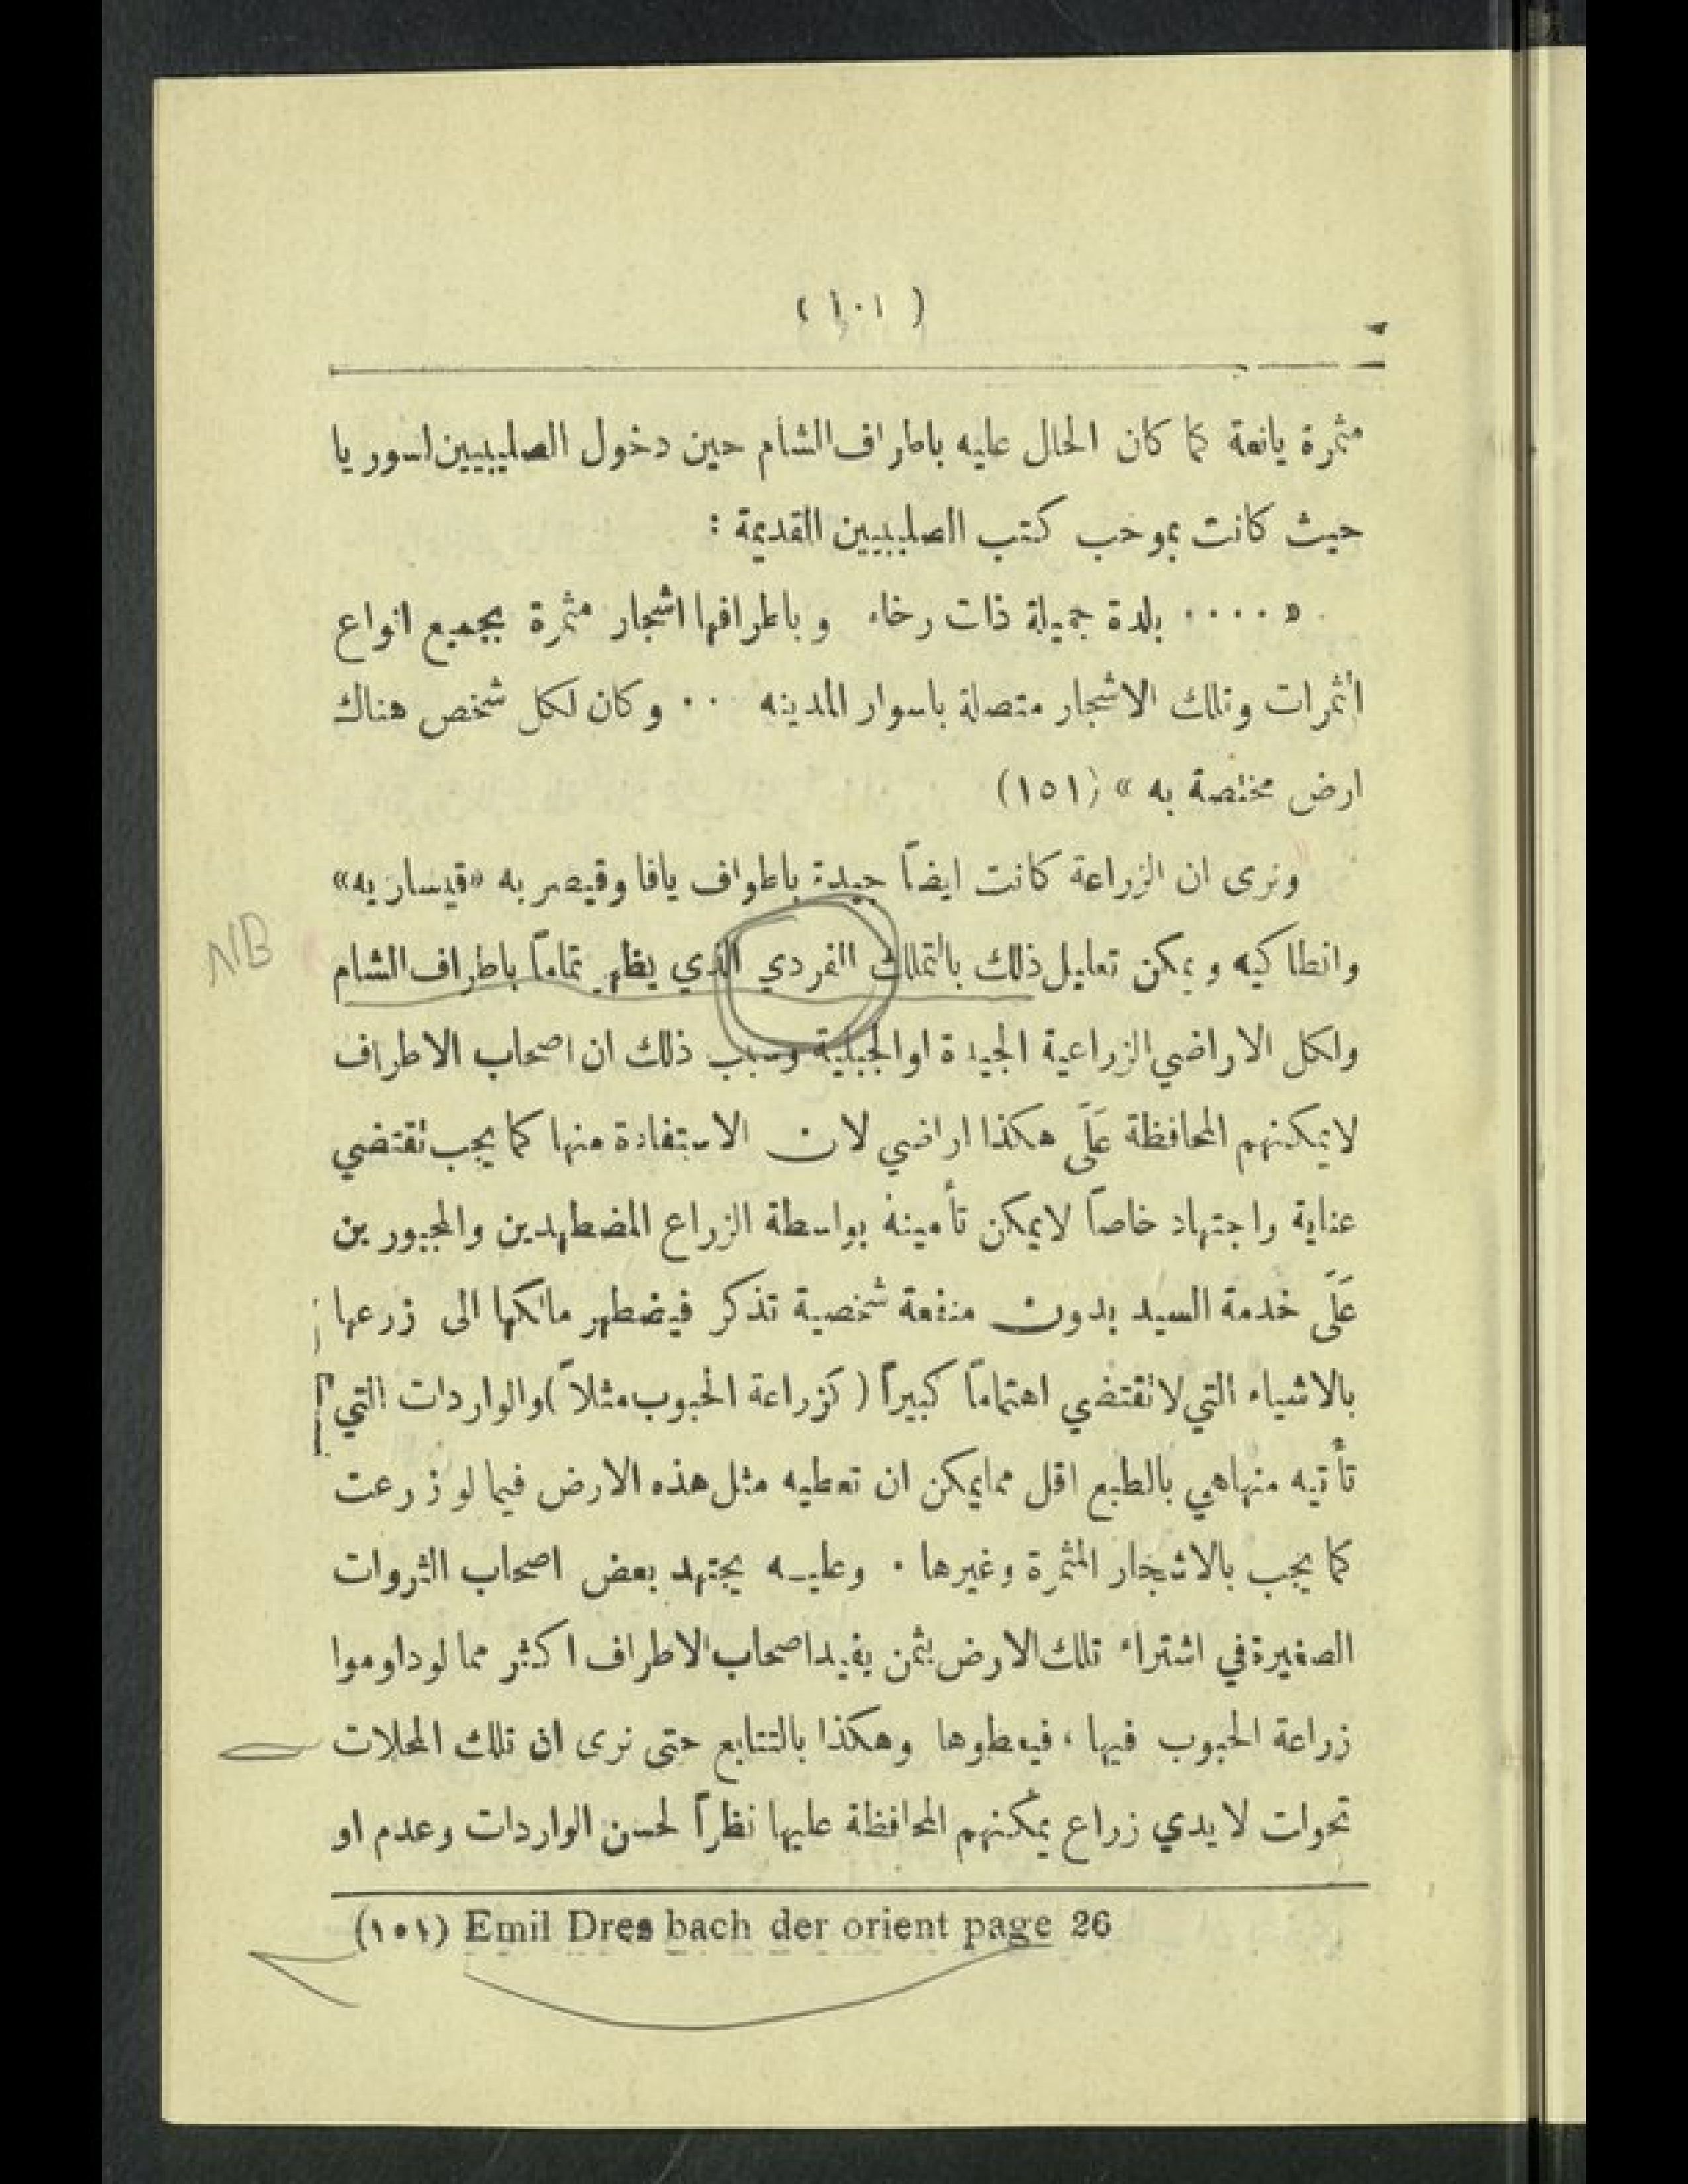 ( ١٠١ )
مثمرة يانعة كما كان الحال عليه باطراف الشام حين دخول الصليبيين لسوريا
حيث كانت بموجب كتب الصليبيين القديمة :
« ٠٠٠٠ بلدة جميلة ذات رخاء وباطرافها اشجار مثمرة بجميع انواع
الثمرات وتلك الاشجار متصلة باسوار المدينه ٠٠ وكان لكل شخص هناك
ارض مختصة به » (١٥١)
ونرى ان الزراعة كانت ايضاً جيدة باطراف يافا وقيصربه «قيساريه»
وانطاكيه ويمكن تعليل ذلك بالتملك الفردي الذي يظهر تماماً باطراف الشام
NB
ولكل الاراضي الزراعية الجيدة اوالجبلية وسبب ذلك ان اصحاب الاطراف
لايمكنهم المحافظة عَلَى هكذا اراضي لان الاستفادة منها كما يجب تقتضي
عناية واجتهاد خاصاً لايمكن تأمينه بواسطة الزراع المضطهدين والمجبورين
عَلَى خدمة السيد بدون منفعة شخصية تذكر فيضطهر مالكها الى زرعها
بالاشياء التي لاتقتضي اهتماماً كبيراً (كزراعة الحبوب مثلاً) والواردات التي
تأتيه منهاهي بالطبع اقل ممايمكن ان تعطيه مثل هذه الارض فيما لو زرعت
كما يجب بالاشجار المثمرة وغيرها ٠ وعليه يجتهد بعض اصحاب الثروات
الصغيرة في اشتراء تلك الارض بثمن يفيد اصحاب الاطراف اكثر مما لوداوموا
زراعة الحبوب فيها ، فيعطوها وهكذا بالتتابع حتى نرى ان تلك المحلات
تحوات لايدي زراع يمكنهم المحافظة عليها نظراً لحسن الواردات وعدم او
(١٥١) Emil Dres bach der orient page 26